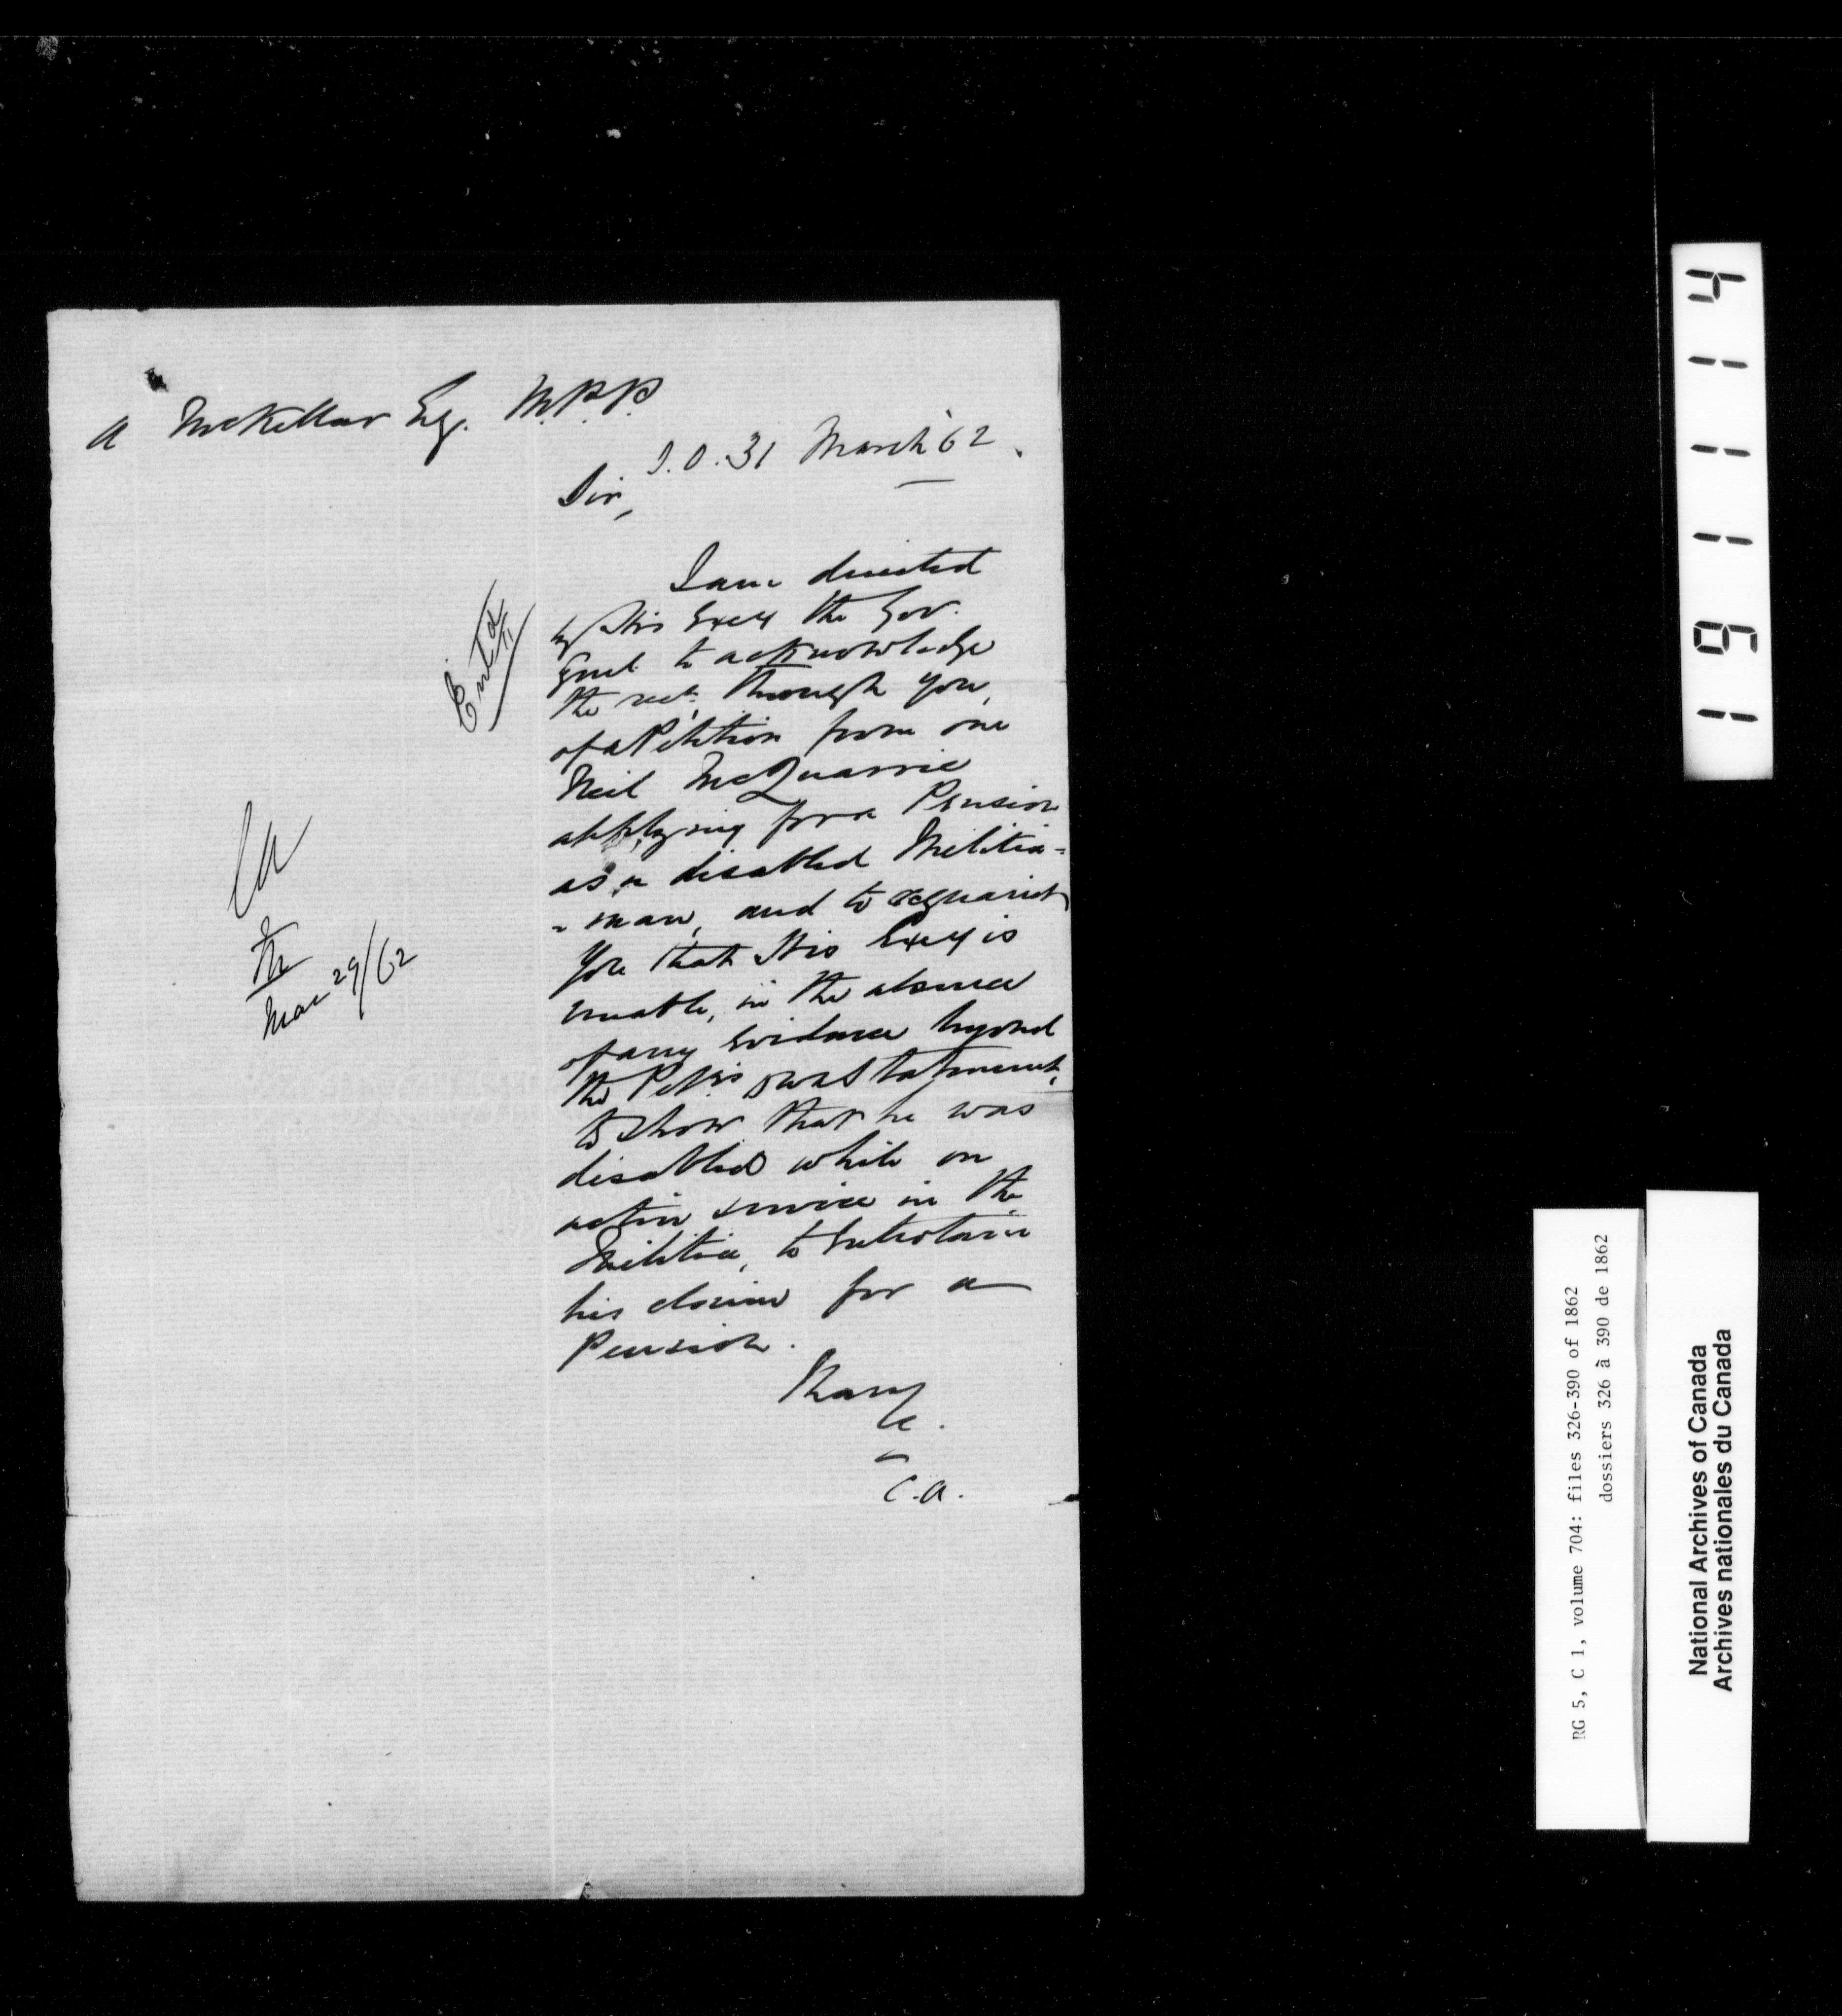 A McKellar Esq. M.P.P.
S.O. 31 March '62.
Sir,
I am directed
by His Excy the Gov.
Genl to acknowledge
the rect, through you,
of a Petition from one
Neil McQuarrie
applying for a Pension
as a disabled Militia=
=man, and to acquaint
you that His Excy is
unable, in the absence
of any evidence beyond
the Petrs own statement,
to show that he was
disabled while on
active service in the
Militia, to entertain
his claim for a
Pension.
I have
&c.
C.A.
Entd
Mar 29/62
191114
RG 5, C 1, volume 704: files 326-390 of 1862
dossiers 326 à 390 de 1862
National Archives of Canada
Archives nationales du Canada